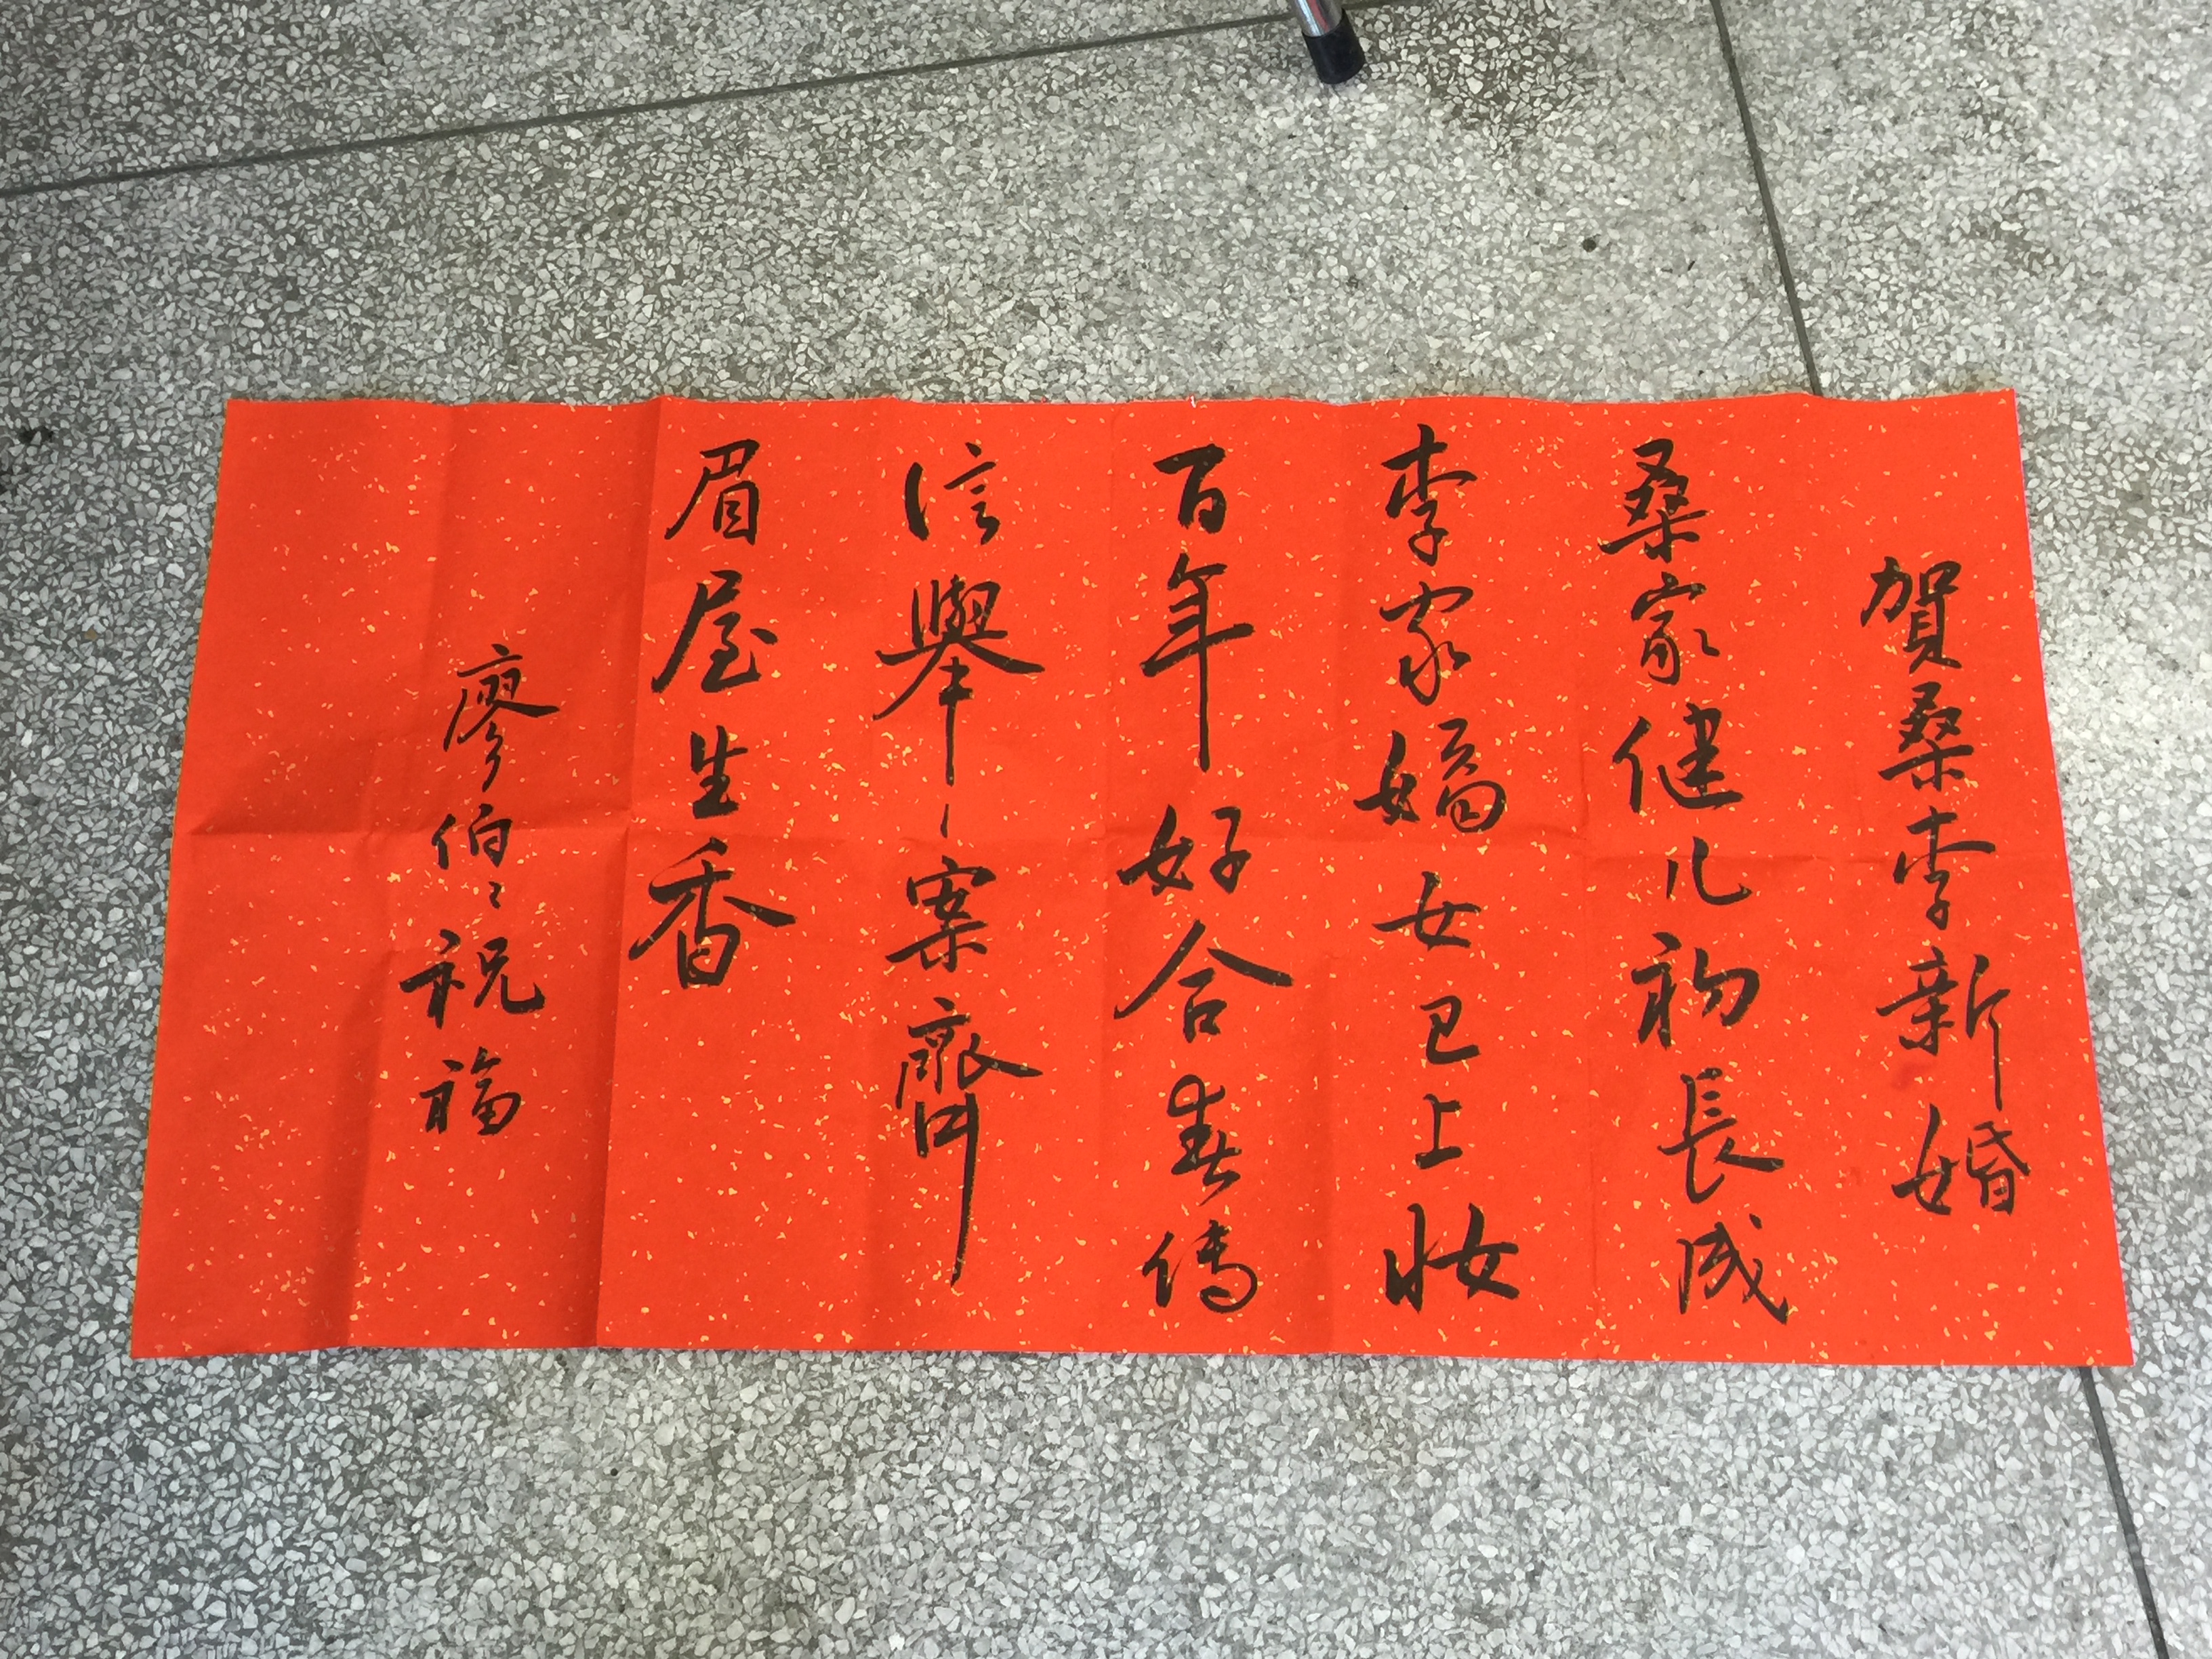 賀桑李新婚
桑家健儿初長成
李家嬌女已上妝
百年好合喜傳
信舉案齊
眉屋生香
廖伯々祝福